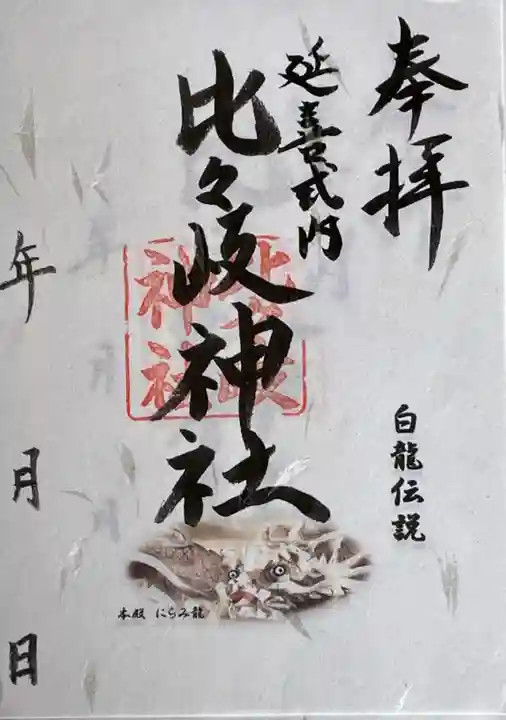 奉拝
延喜式内
比々岐神社
比々岐
神社
白龍伝説
本殿 にらみ龍
年 月 日